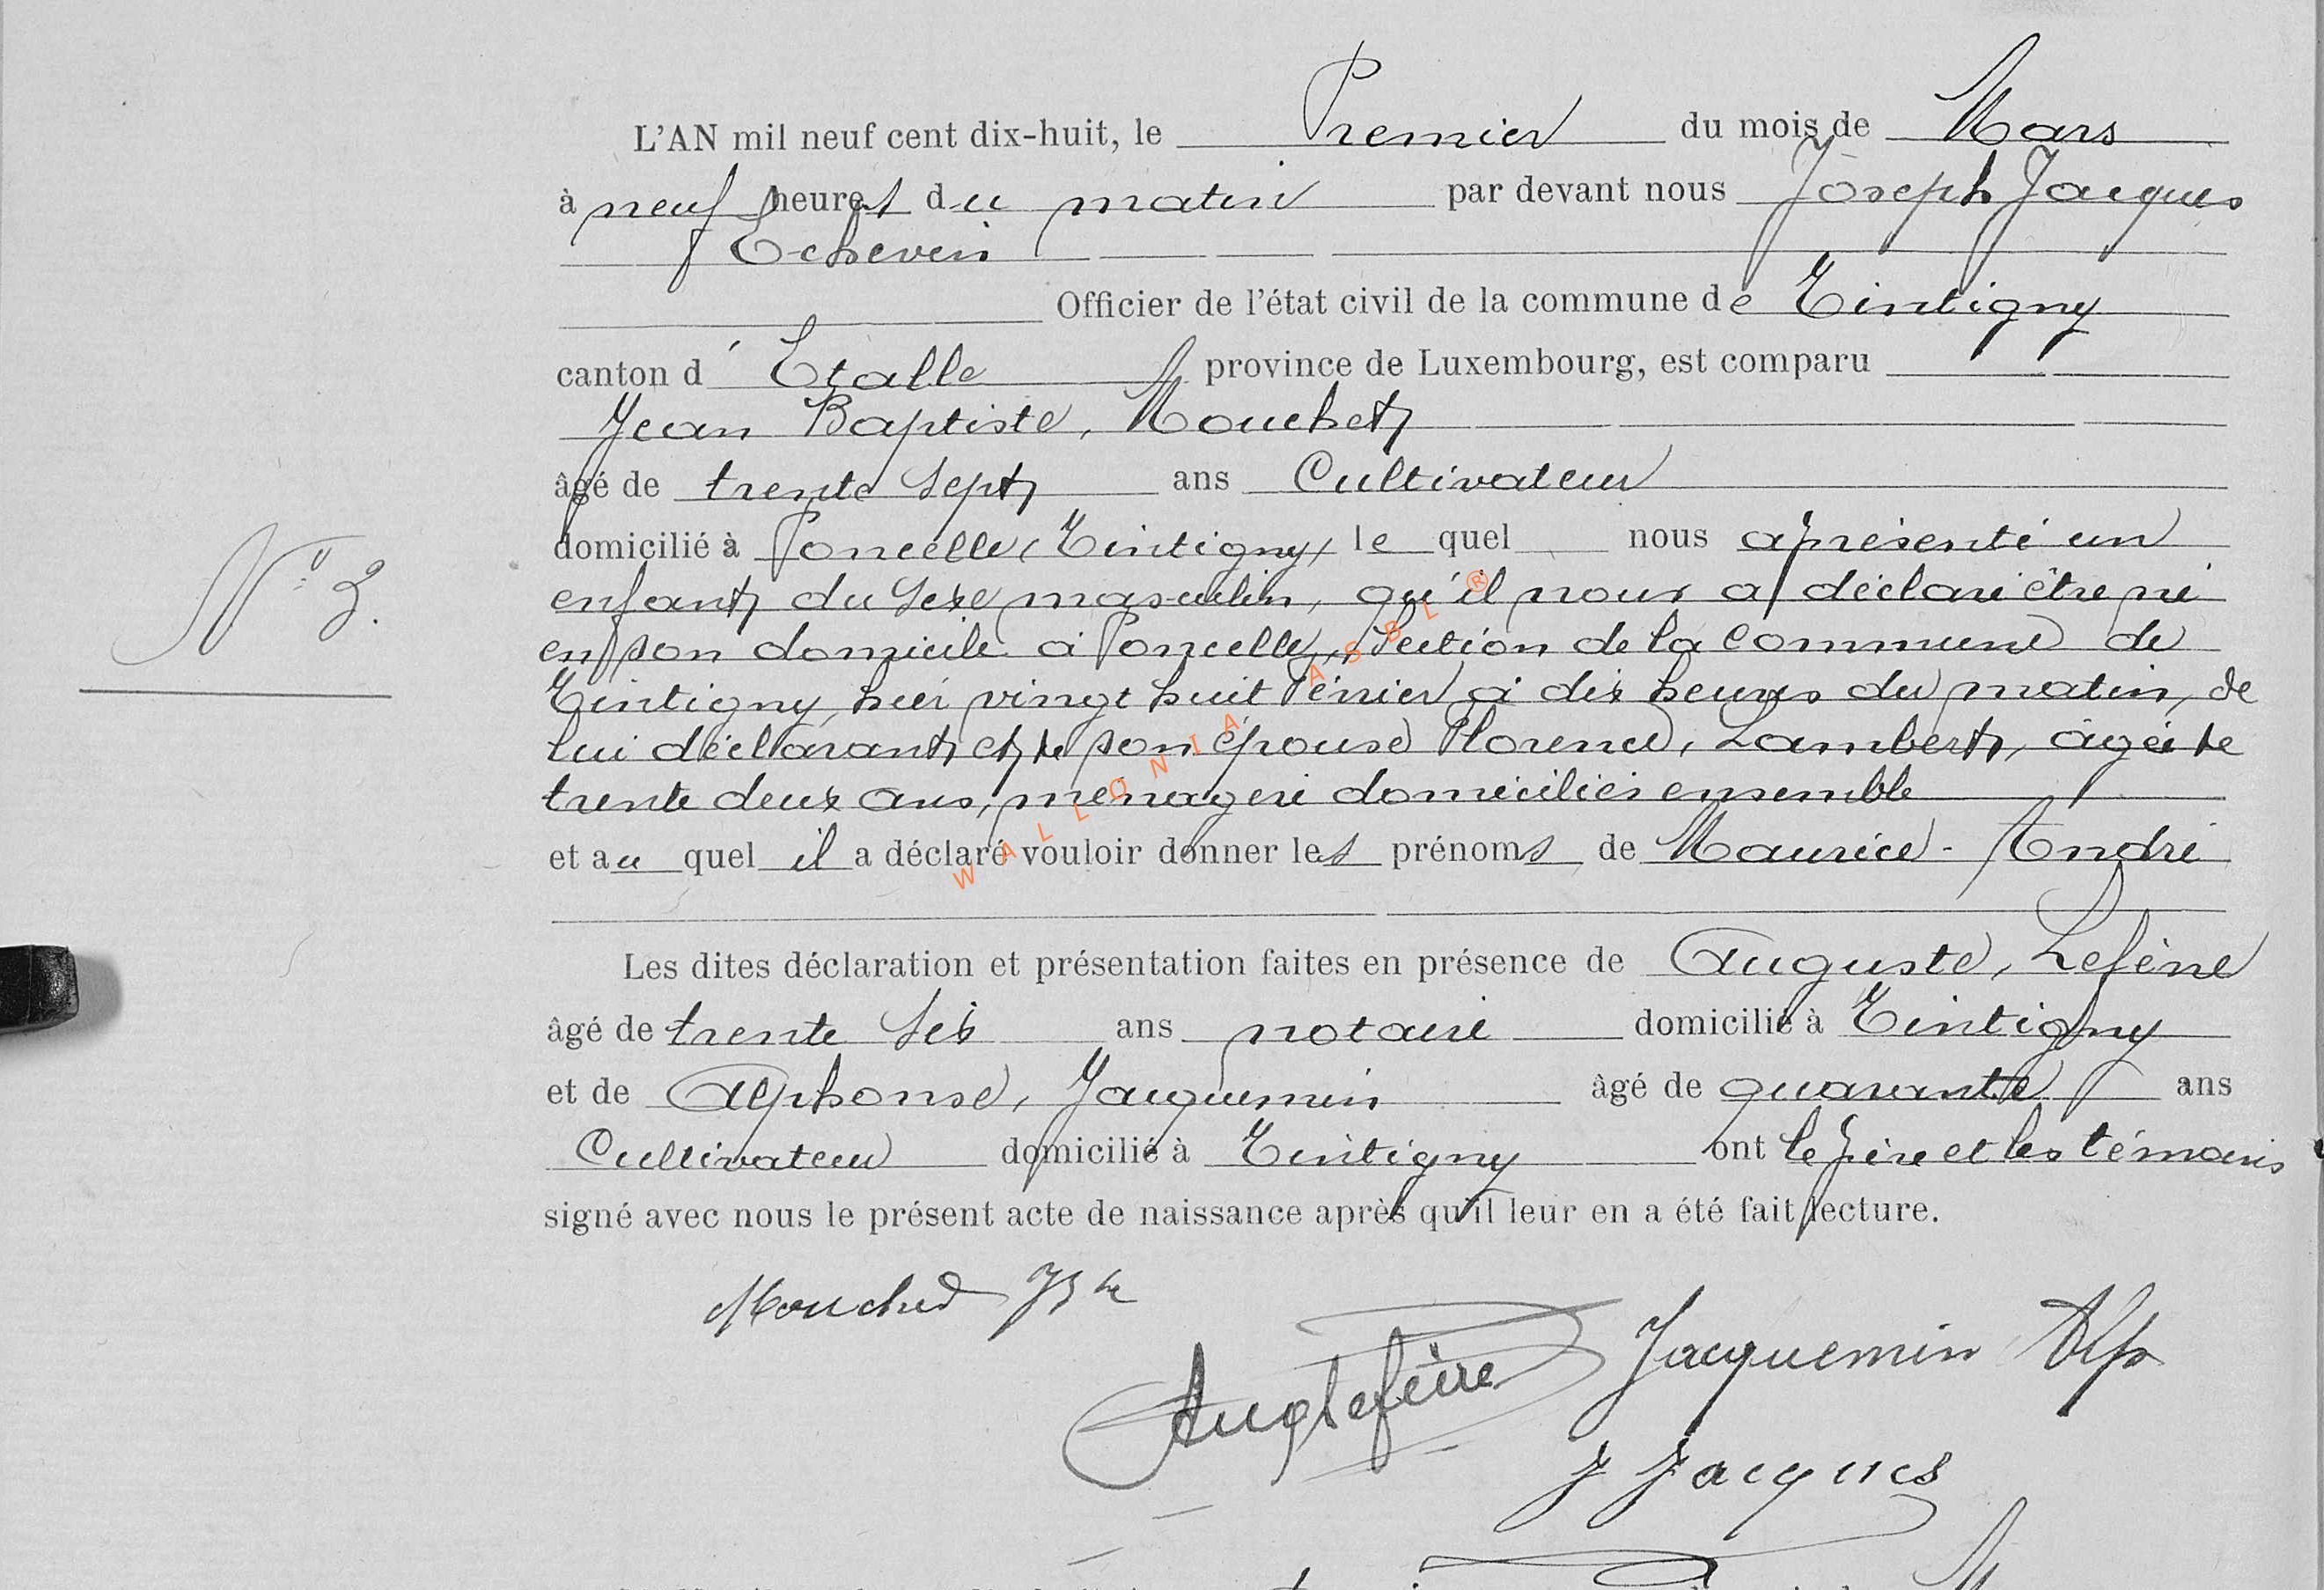 L'AN mil neuf cent dix-huit, le Premier du mois de Mars
à neuf heures du matin par devant nous Joseph Jacques
Echevin
Officier de l'état civil de la commune de Tintigny
canton d'Etalle province de Luxembourg, est comparu
Jean Baptiste, Mouchet
âgé de trente sept ans Cultivateur
domicilié à Poncelle (Tintigny) lequel nous a présenté un
N° 3.
enfant du sexe masculin, qu'il nous a déclaré être né
en son domicile à Poncelle, section de la commune de
Tintigny, hier vingt huit Février à dix heures du matin, de
lui déclarant et de son épouse Florence, Lambert, âgée de
trente deux ans, ménagère domiciliés ensemble
et auquel il a déclaré vouloir donner les prénoms de Maurice - André
Les dites déclaration et présentation faites en présence de Auguste, Lefèvre
âgé de trente six ans notaire domicilié à Tintigny
et de Alphonse, Jacquemin âgé de quarante ans
Cultivateur domicilié à Tintigny ont le père et les témoins
signé avec nous le présent acte de naissance après qu'il leur en a été fait lecture.
Mouchet JBte
Aug Lefèvre
Jacquemin Alp
J Jacques
WALLONIA ASBL ®